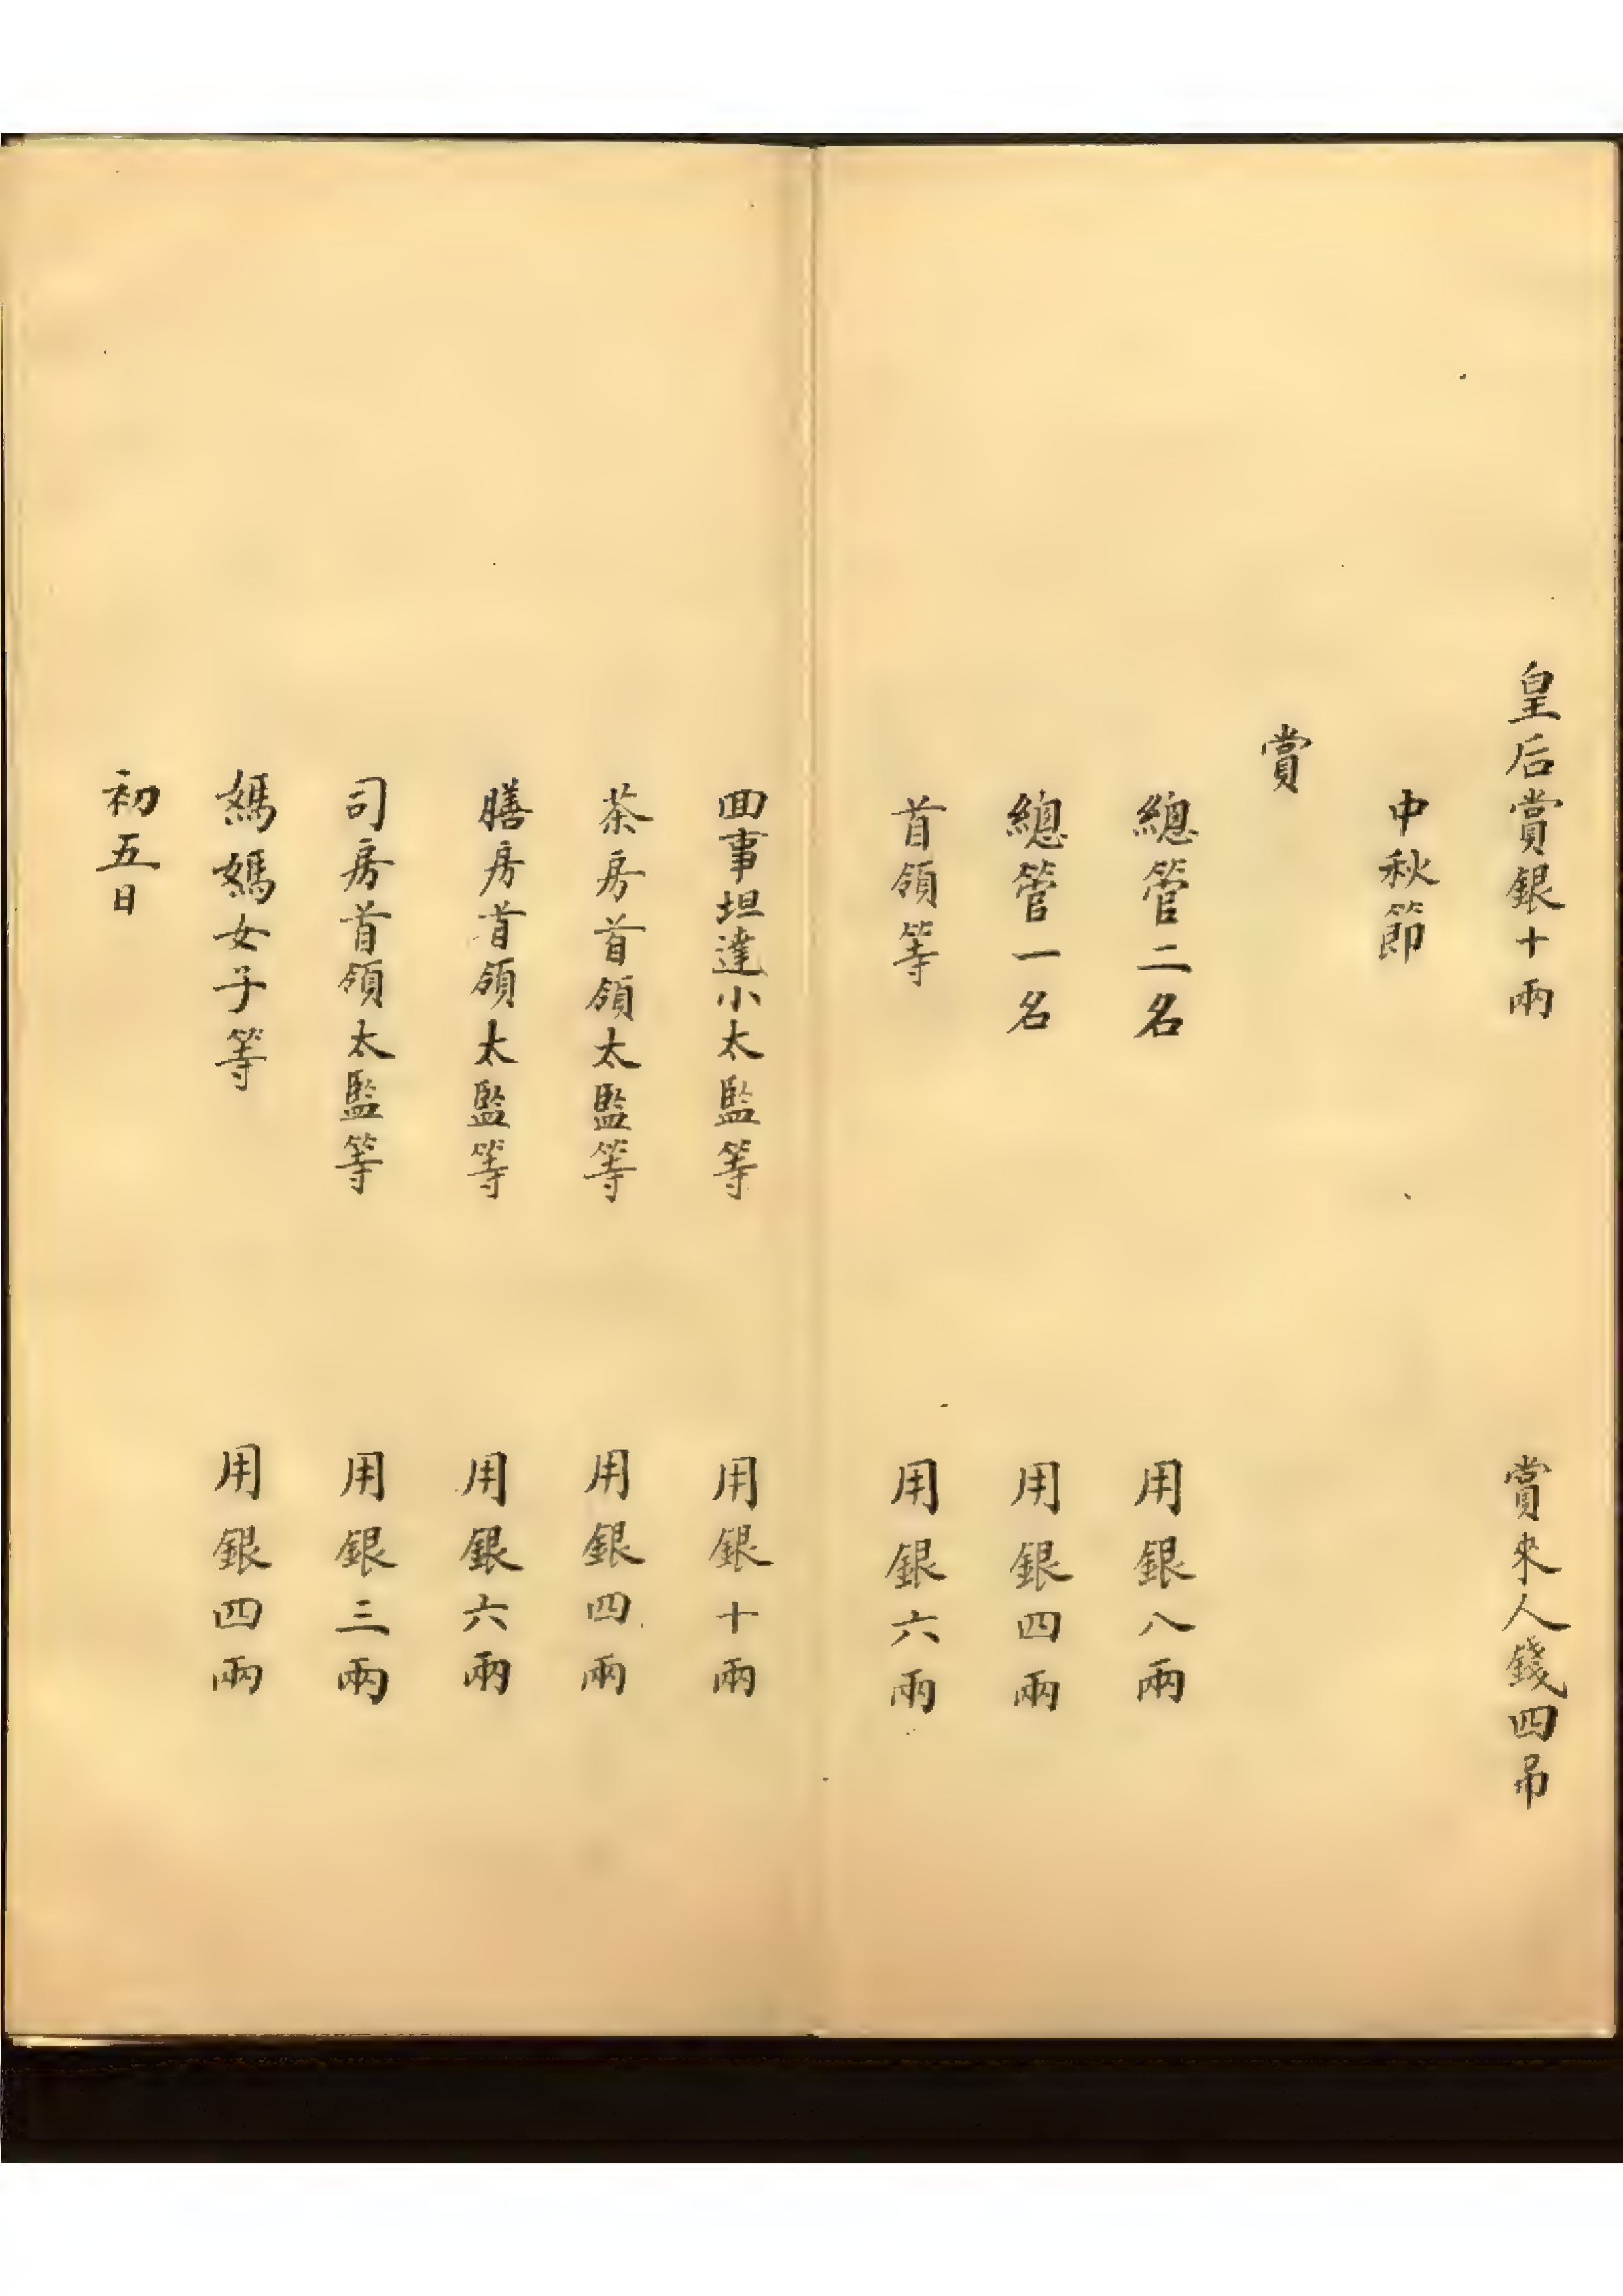 皇后賞銀十兩　賞來人錢四吊
中秋節
賞
總管二名　用銀八兩
總管一名　用銀四兩
首領等　用銀六兩
回事坦達小太監等　用銀十兩
茶房首領太監等　用銀四兩
膳房首領太監等　用銀六兩
司房首領太監等　用銀三兩
媽媽女子等　用銀四兩
初五日